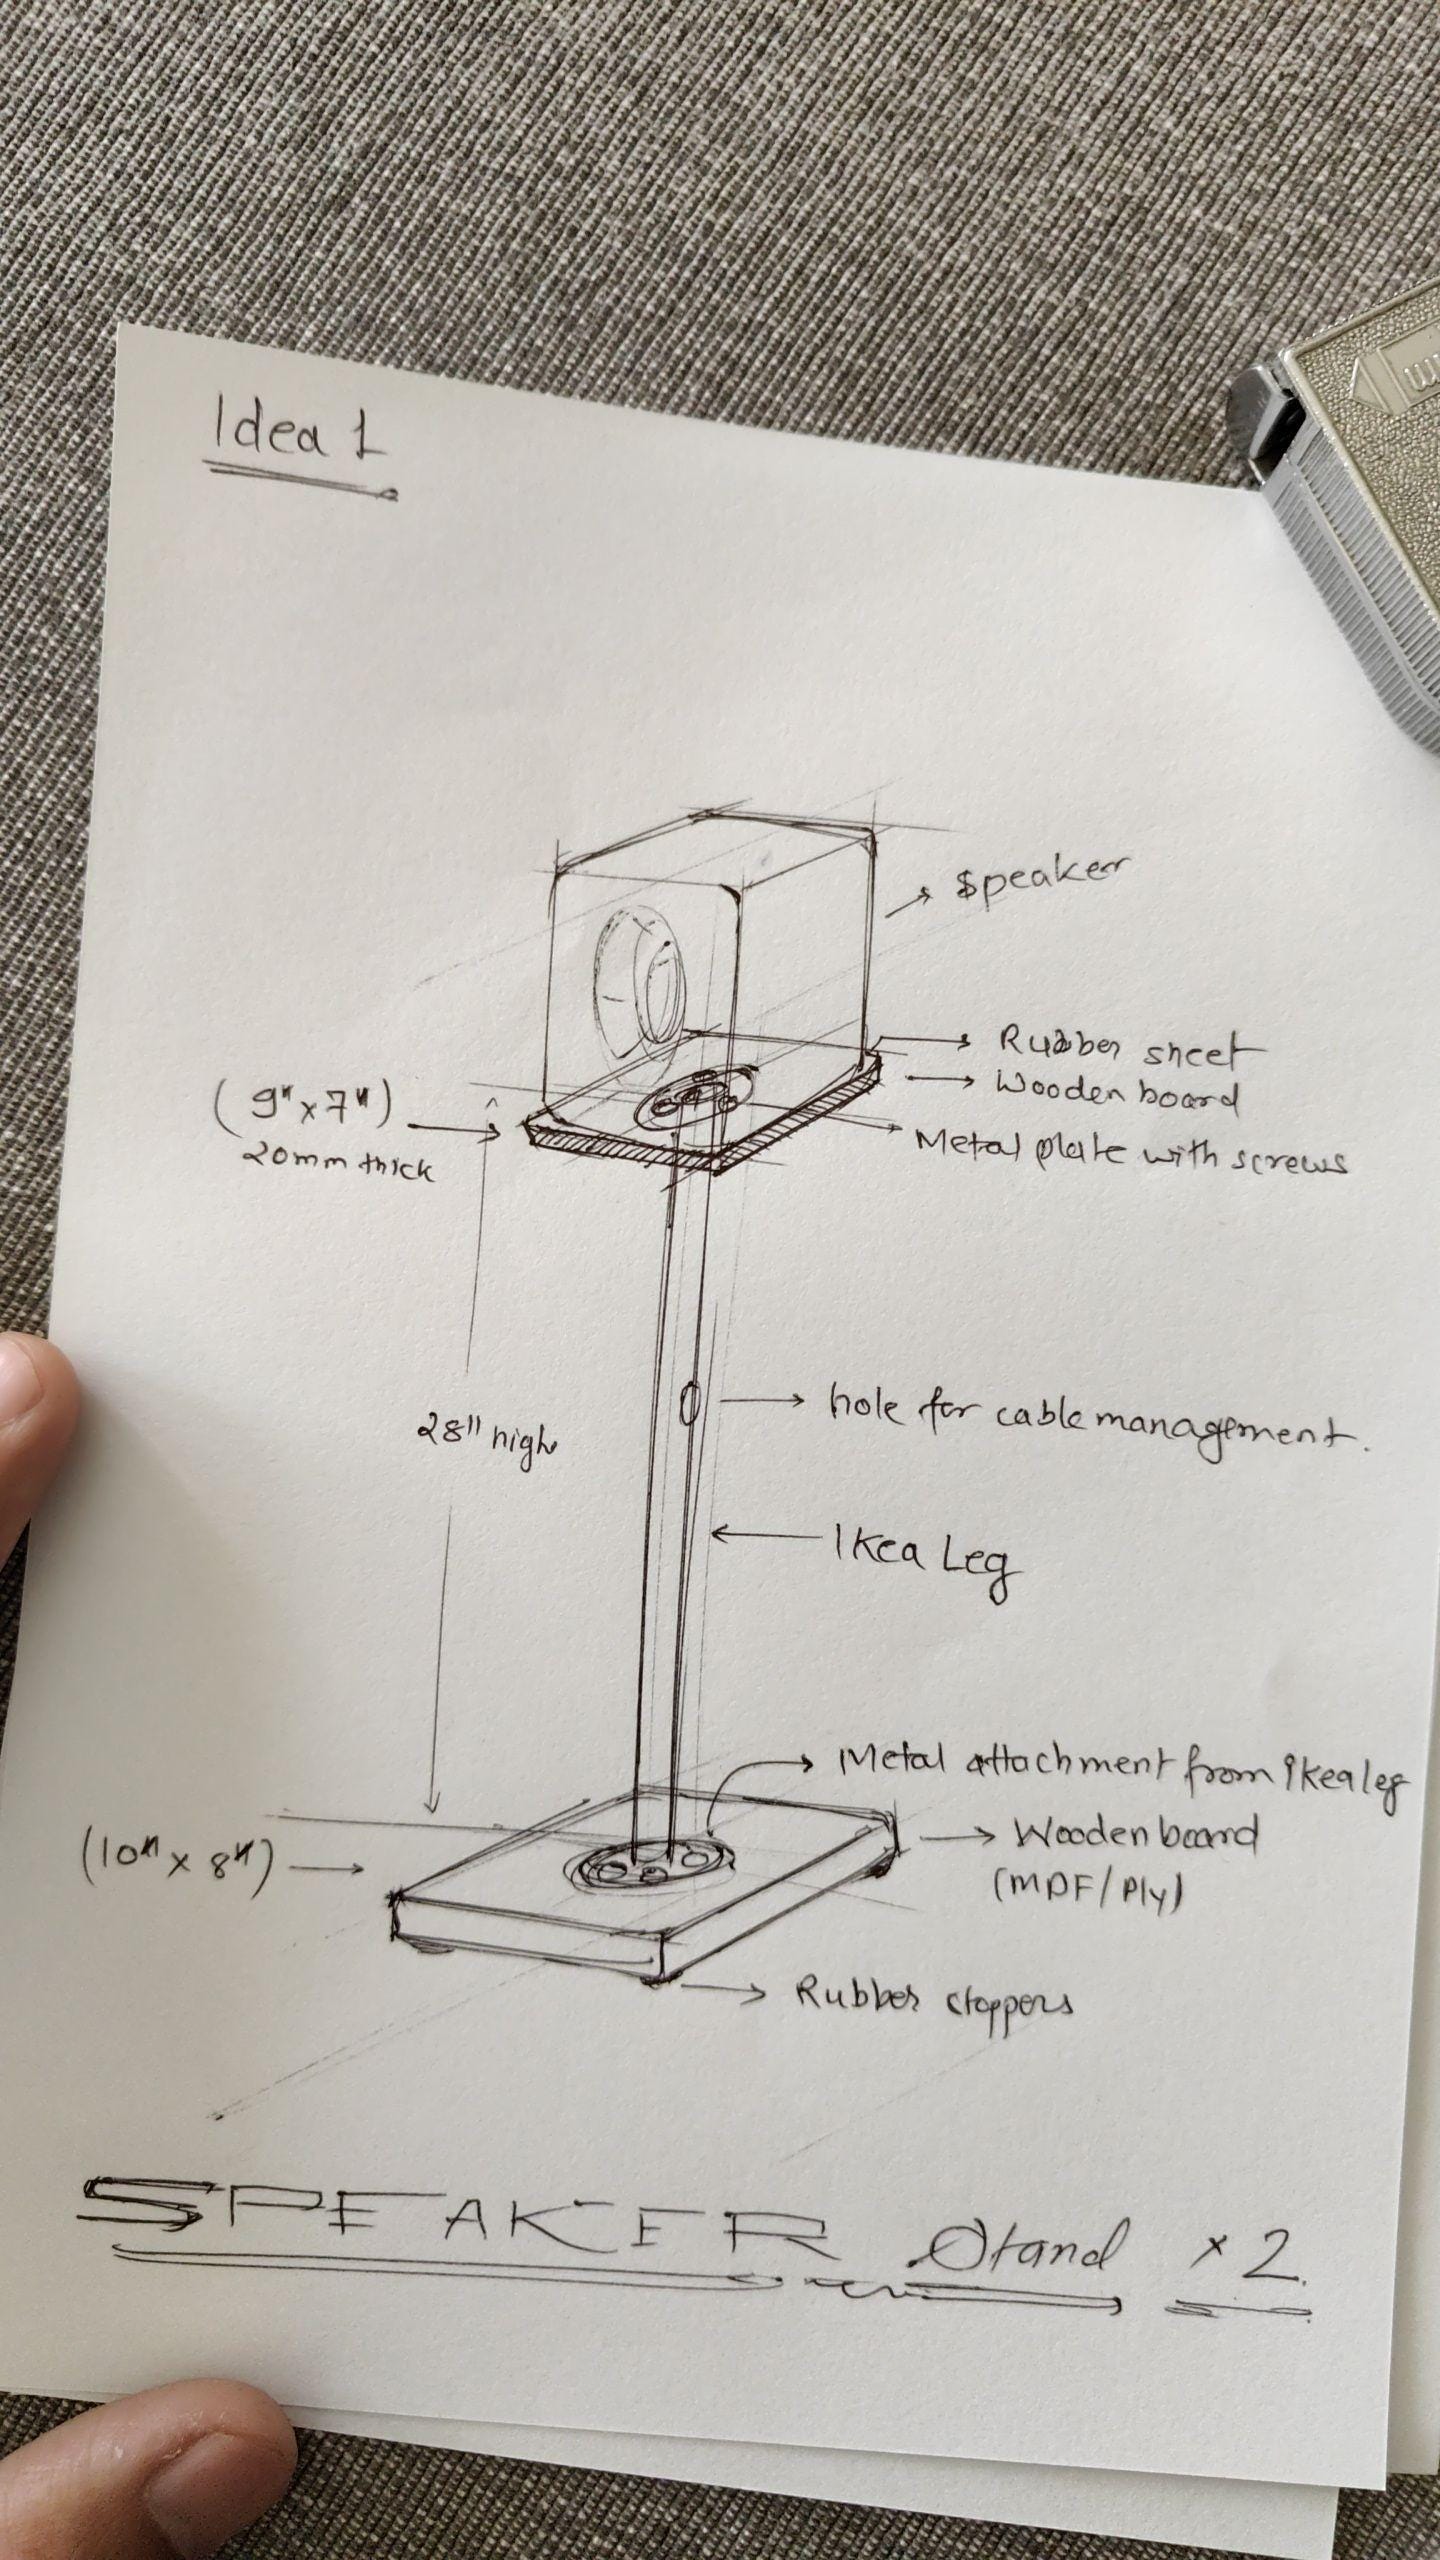 Idea 1
Speaker
Rubber sheet
Wooden board
Metal plate with screws
(9" x 7")
20mm thick
hole for cable management.
28" high
Ikea Leg
Metal attachment from ikea leg
Wooden board
(MDF/Ply)
(10" x 8")
Rubber stoppers
SPEAKER Stand x 2